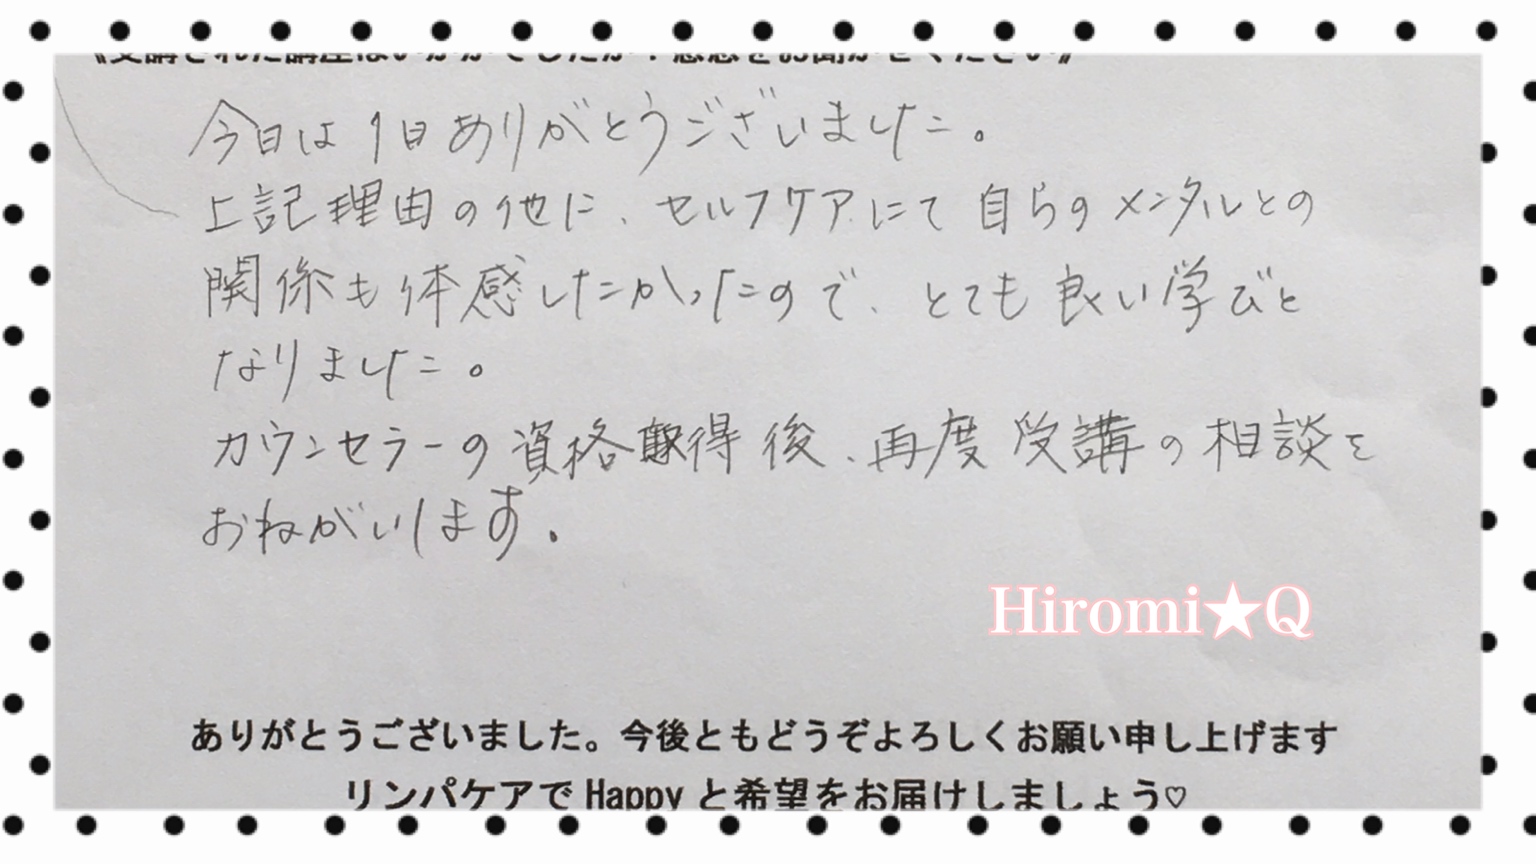 《受講された講座はいかがでしたか？感想をお聞かせください》
今日は1日ありがとうございました。
上記理由の他に、セルフケアにて自らのメンタルとの
関係も体感したかったので、とても良い学びと
なりました。
カウンセラーの資格取得後、再度受講の相談を
おねがいします。
Hiromi★Q
ありがとうございました。今後ともどうぞよろしくお願い申し上げます
リンパケアでHappyと希望をお届けしましょう♡